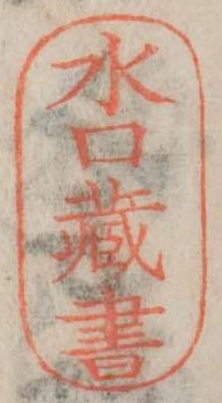 水口藏書